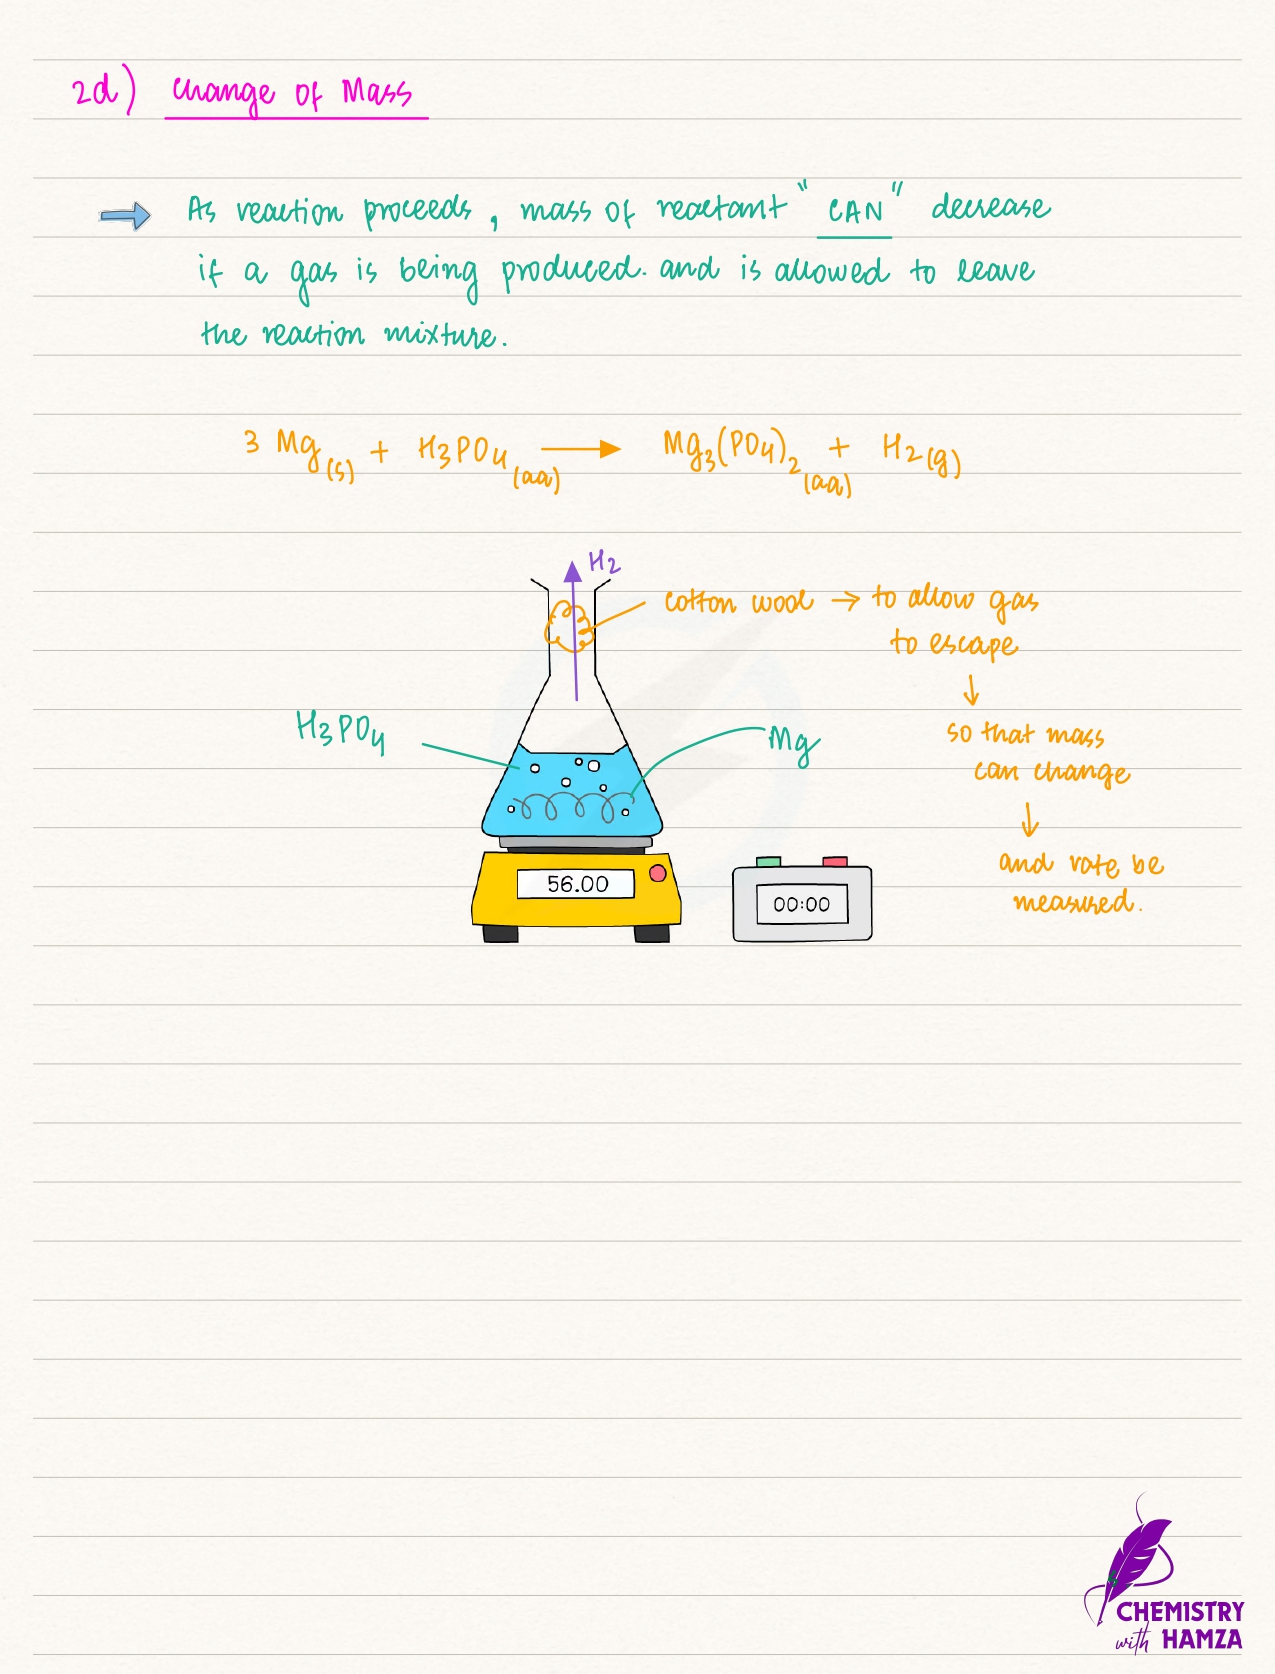 2d) Change of Mass
As reaction proceeds, mass of reactant "CAN" decrease
if a gas is being produced. and is allowed to leave
the reaction mixture.
3 Mg(s) + H3PO4(aq) → Mg3(PO4)2(aq) + H2(g)
H2
cotton wool → to allow gas
to escape
↓
H3PO4
Mg
so that mass
can change
↓
and rate be
measured.
56.00
00:00
CHEMISTRY
with HAMZA